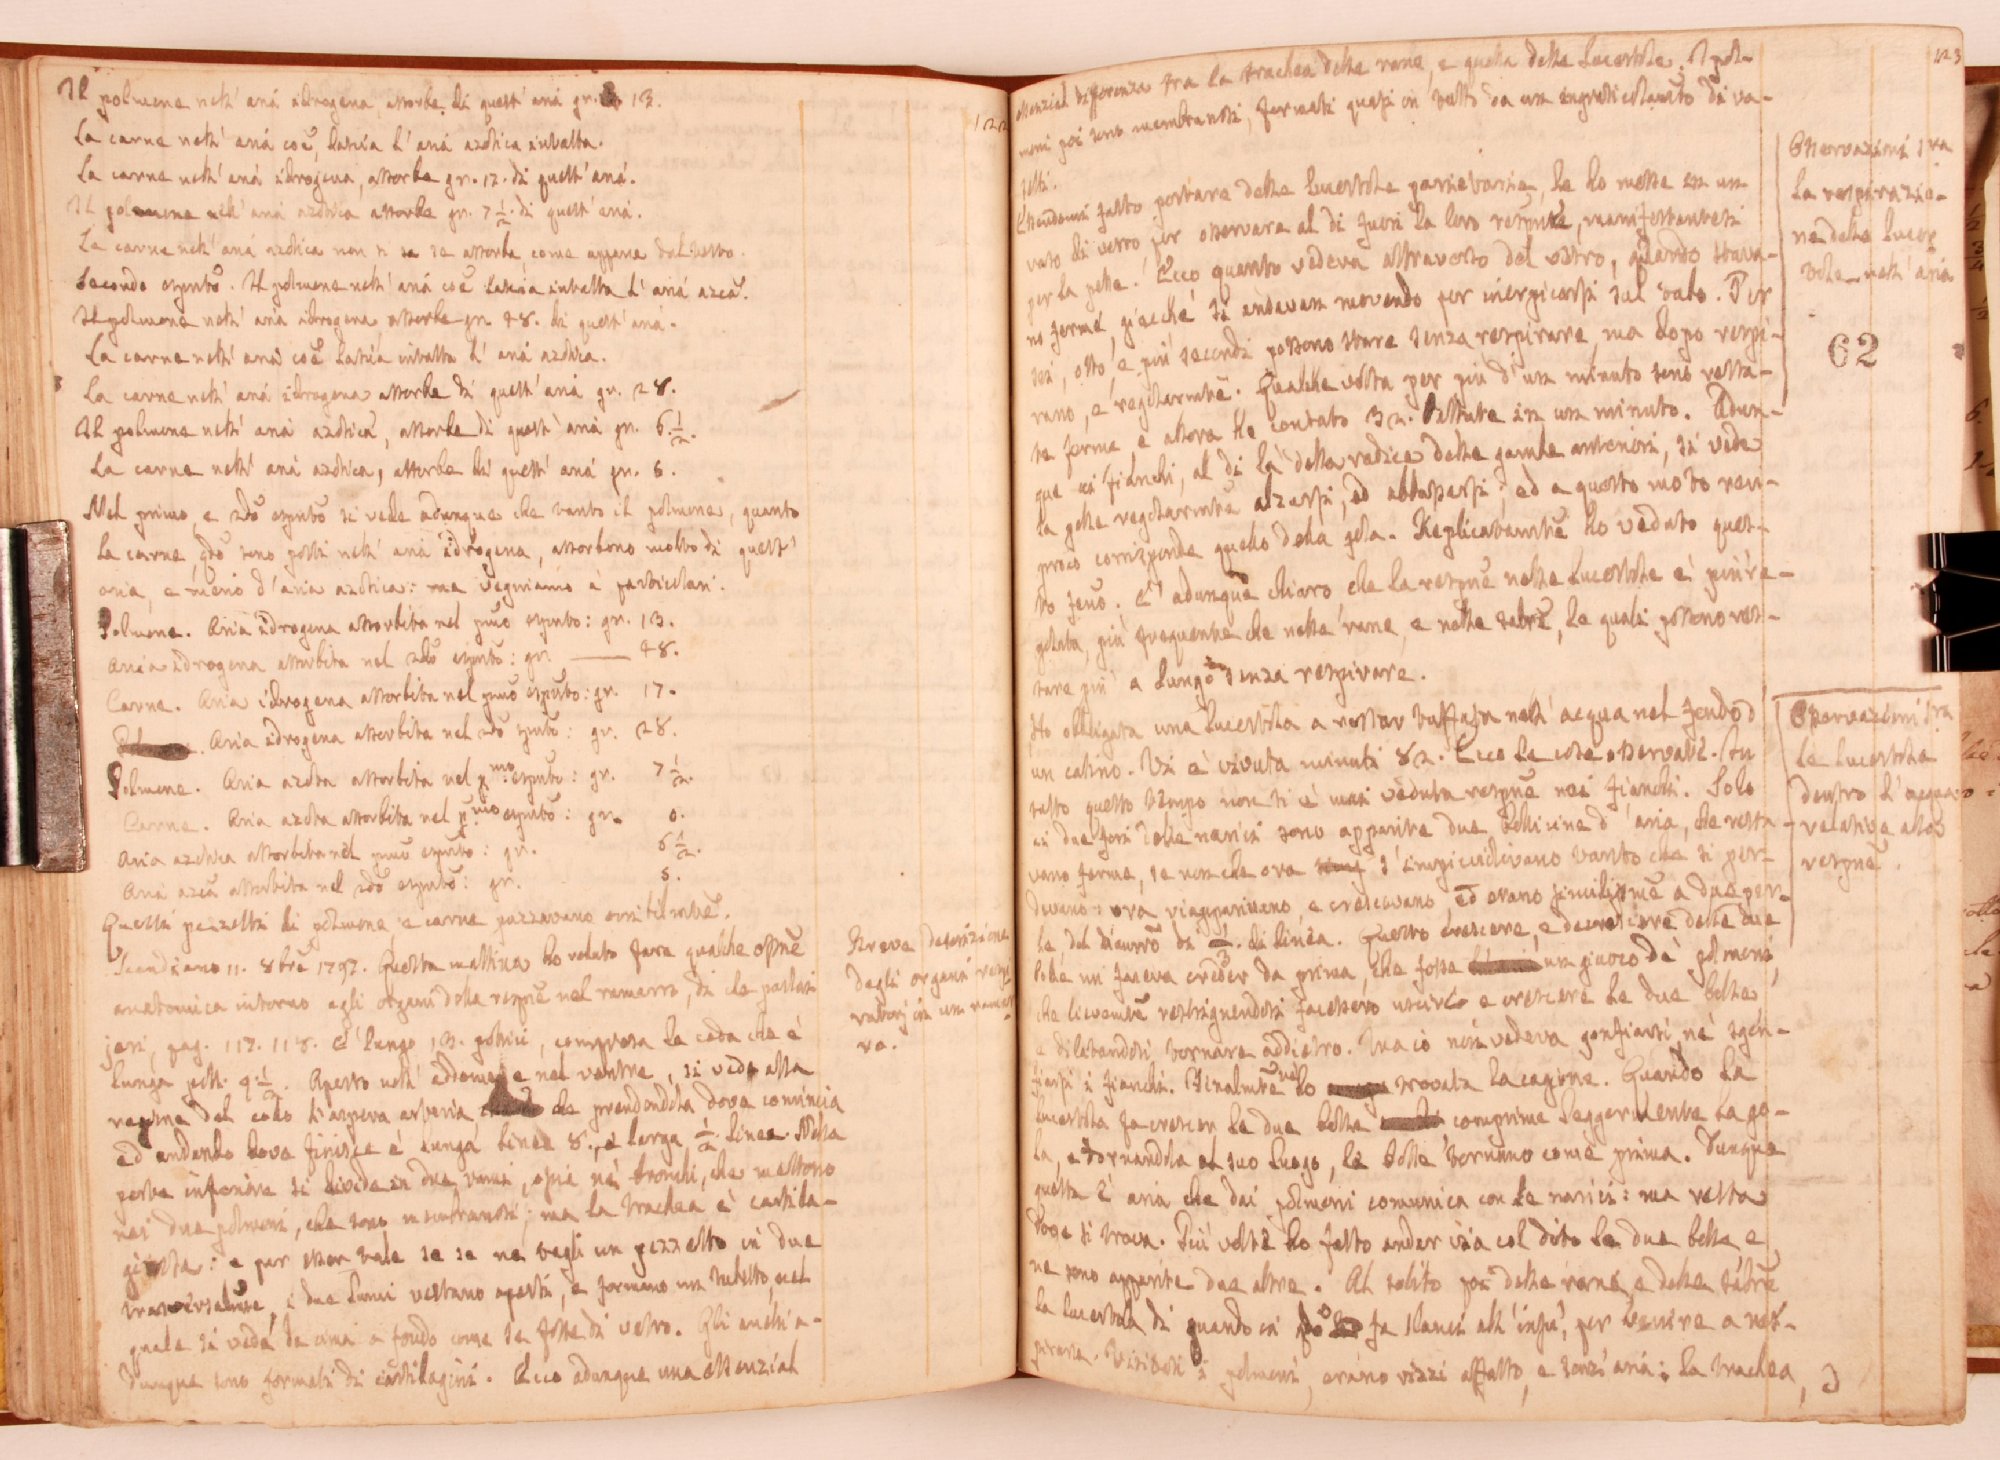 122
Il polmone nell' aria idrogena assorbe di quest' aria gr. 13.
La carne nell' aria coē, lascia l' aria azotica intatta.
La carne nell' aria idrogena, assorbe gr. 17. di quest' aria.
Il polmone nell' aria azotica assorbe gr. 7 1/2. di quest' aria.
La carne nell' aria azotica non si sa se assorba, come appare dal
Secondo esprito. Il polmone nell' aria coē lascia intatta l' aria azoa.
Il polmone nell' aria idrogena assorbe gr. 48. di quest' aria.
La carne nell' aria coē lascia intatta l' aria azotica.
La carne nell' aria idrogena assorbe di quest' aria gr. 28.
Il polmone nell' aria azotica, assorbe di quest' aria gr. 6. 1/2.
La carne nell' aria azotica, assorbe di quest' aria gr. 5.
Nel primo, e 2do esprito si vede adunque che tanto il polmone, quanto
la carne, qdo sono posti nell' aria idrogena, assorbono molto di quest'
aria, e meno d' aria azotica: ma vegniamo a' particolari.
Polmone. Aria idrogena assorbita nel pmo esprito: gr. 13.
Aria idrogena assorbita nel 2do esprito: gr. 48.
Carne. Aria idrogena assorbita nel pmo esprito: gr. 17.
Aria idrogena assorbita nel 2do esprito: gr. 28.
Polmone. Aria azota assorbita nel pmo esprito: gr. 7 1/2.
Carne. Aria azota assorbita nel pmo esprito: gr. 0.
Aria azotica assorbita nel pmo esprito: gr. 6 1/2.
Aria azoa assorbita nel 2do esprito: gr. 5.
Questi pezzetti di polmone, e carne puzzavano orribilmte.
Scandiano 11. 8bre 1797. Questa mattina ho voluto fare qualche ossne
anatomica intorno agli organi della respne nel ramarro, di che parlasi
jeri, pag. 117. 118. E' lungo 13. pollici, compresa la coda che è
lunga poll. 9 1/2. Aperto nell' addome, e nel ventre, si vede alla
regione del collo l' aspera arteria, che prendendola dove comincia
ed andando dove finisce è lunga linee 8., e larga 1/2. linea. Nella
parte inferiore si divide in due rami, ossia ne' bronchi, che mettono
nei due polmoni, che sono membranosi; ma la trachea è cartila-
ginosa: e per esser tale se se ne tagli un pezzetto in due
trasversalmte, i due lumi restano aperti, e formano un tubetto, nel
quale si vede da cima a fondo come se fosse di vetro. Gli anelli a-
dunque sono formati di cartilagini. Ecco adunque una essenzial
Breve descrizione
degli organi respi-
ratorj in un ramar-
ro.
123
essenzial differenza tra la trachea delle rane, e quella delle lucertole. I pol-
moni poi sono membranosi, formati quasi in tutto da un ingraticolamto di va-
setti.
Essendomi fatto portare delle lucertole parietarie, le ho messe in un
vaso di vetro, per osservare al di fuori la loro respne, manifestantesi
per la pelle. Ecco quanto vedeva attraverso del vetro, quando stava-
no ferme, giacchè si andavan movendo per inerpicarsi sul vaso. Per
sei, otto, e più secondi possono stare senza respirare, ma dopo respi-
rano, e regolarmte. Qualche volta per più d' un minuto sono resta-
te ferme, e allora ho contato 32. battute in un minuto. Adun-
que ai fianchi, al di là della radice delle gambe anteriori, si vede
la pelle regolarmte alzarsi, ed abbassarsi; ed a questo moto reci-
proco corrisponde quello della gola. Replicatamte ho veduto ques-
to feno. E' adunque chiaro che la respne nelle lucertole è più re-
golata, più frequente che nelle rane, e nelle salre, le quali possono res-
tare più a lungo senza respirare.
Ho obbligata una lucertola a restar tuffata nell' acqua nel fondo d'
un catino. Vi è vivuta minuti 82. Ecco le cose osservate. In
tutto questo tempo non si è mai veduta respne nei fianchi. Solo
ai due fori delle narici sono apparite due bollicine d' aria, che resta-
vano ferme, se non che ora s' impiccolivano tanto che si per-
devano: ora riapparivano, e crescevano, ed erano similissime a due per-
le, del diamro di 1/3. di linea. Questo crescere, e decrescere delle due
bolle mi faceva creder da prima, che fosse un giuoco de' polmoni,
che lievemte restrignendosi facessero uscire e crescere le due bolle,
e dilatandosi, tornare addietro. Ma io non vedeva gonfiarsi, nè sgon-
fiarsi i fianchi. Finalmte ne ho trovata la cagione. Quando la
lucertola fa crescer le due bolle comprime leggermente la go-
la, e tornandola al suo luogo, le bolle tornano come prima. Dunque
questa è aria che dai polmoni comunica con le narici: ma resta
dove si trova. Più volte ho fatto andar via col dito le due bolle e
ne sono apparite due altre. Al solito poi delle rane, e delle salre
la lucertola di quando in qdo fa slanci all' insù, per venire a res-
pirare. Visitati i polmoni, erano vizzi affatto, e senz' aria: la trachea,
Osservazioni sra
la respirazio-
ne delle lucer
tole nell' aria
62
Osservazioni sra
le lucertole
dentro l' acqua
relative alla
respne.